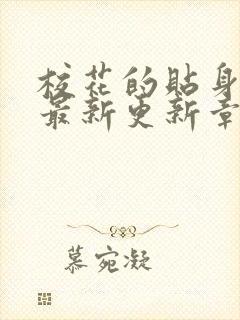 校花的贴身
最新更新章
慕宛凝